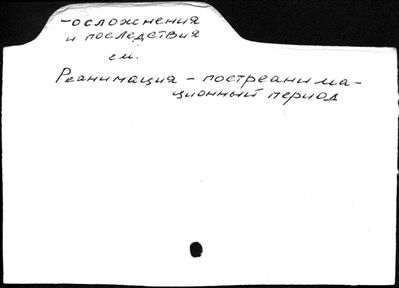 -осложнения
и последствия
см.
Реанимация - постреанима-
ционный период